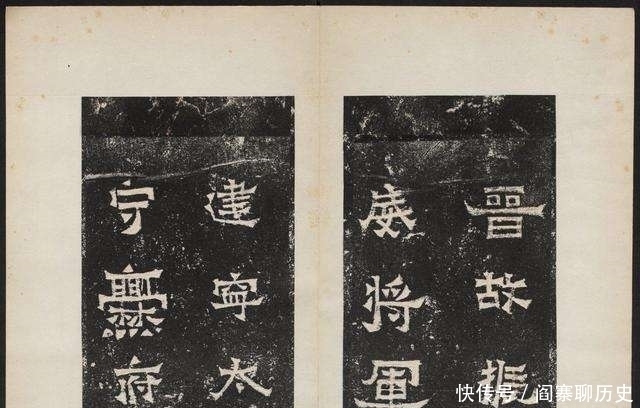 晉故振
威將軍
建寧太
守爨府
快传号/阎寨聊历史